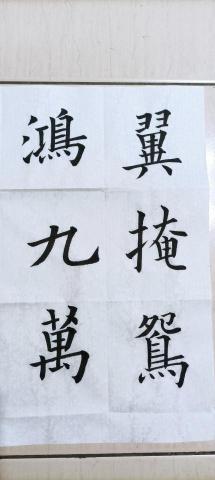 翼掩鴛
鴻九萬